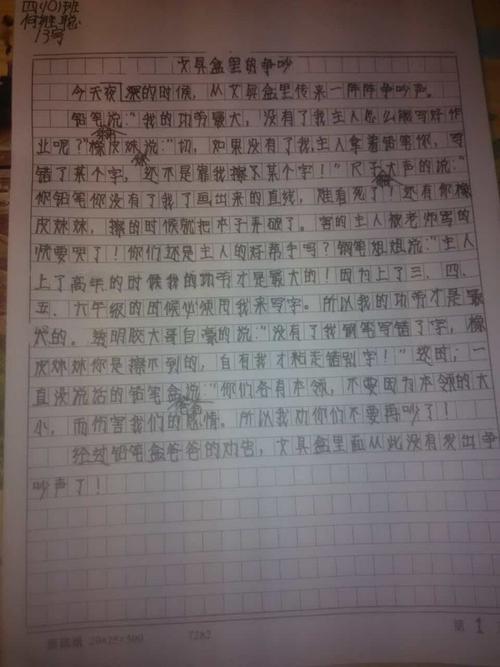 四(10)班
13号
文具盒里的争吵
今天夜深的时候，从文具盒里传来一阵阵争吵声。
铅笔说："我的功劳最大，没有了我主人怎么能写好作
业呢？"橡皮妹说："切，如果没有了我，主人拿着铅笔你，写
错了某个字，还不是靠我擦了某个字！"尺子大声的说："
你铅笔你没有了我了画出来的直线，难看死了！还有你橡
皮妹妹，擦的时候就把本子弄破了。害的主人被老师骂的
快要哭了！你们还是主人的好帮手吗？钢笔姐姐说："主人
上了高年的时候我的功劳才是最大的！因为上了三、四、
五、六年级的时候必须用我来写字。所以我的功劳才是最
大的。透明胶大哥自豪的说："没有了我钢笔写错了字，橡
皮妹妹你是擦不到的，自有我才粘走错别字！"这时，一
直没说话的铅笔盒说："你们各有本领，不要因为本领的大
爸爸
小，而伤害我们的感情。所以我劝你们不要再吵了！
经过铅笔盒爸爸的劝告，文具盒里面从此没有发出争
吵声了！
20×25=500
7282
第 1